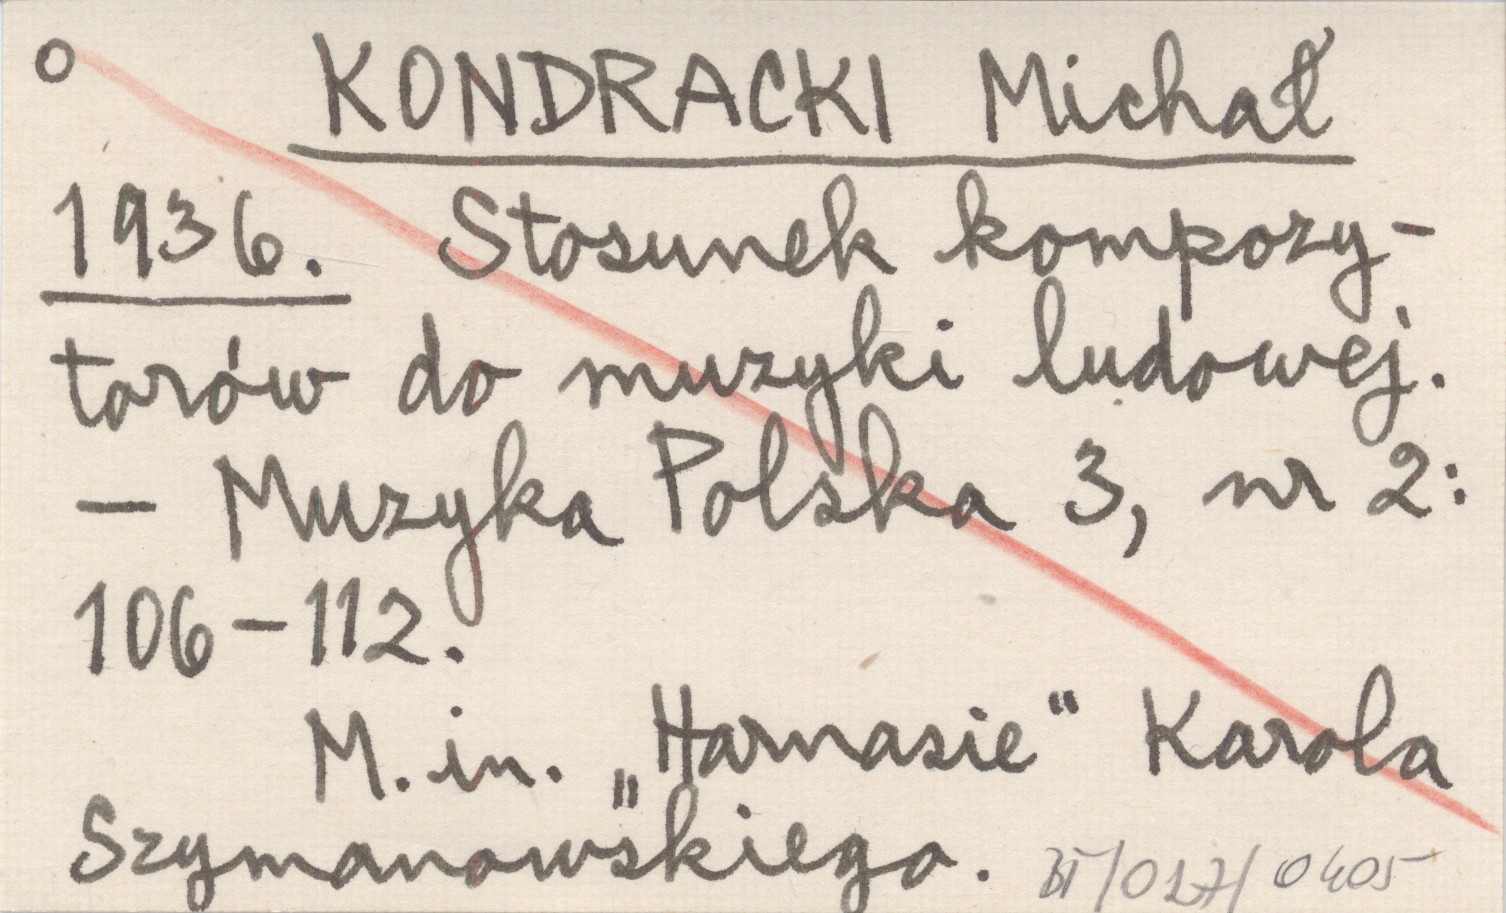 o KONDRACKI Michał
1936. Stosunek kompozy-
torów do muzyki ludowej.
— Muzyka Polska 3, nr 2:
106-112.
M. in. „Harnasie" Karola
Szymanowskiego.
/017/0405